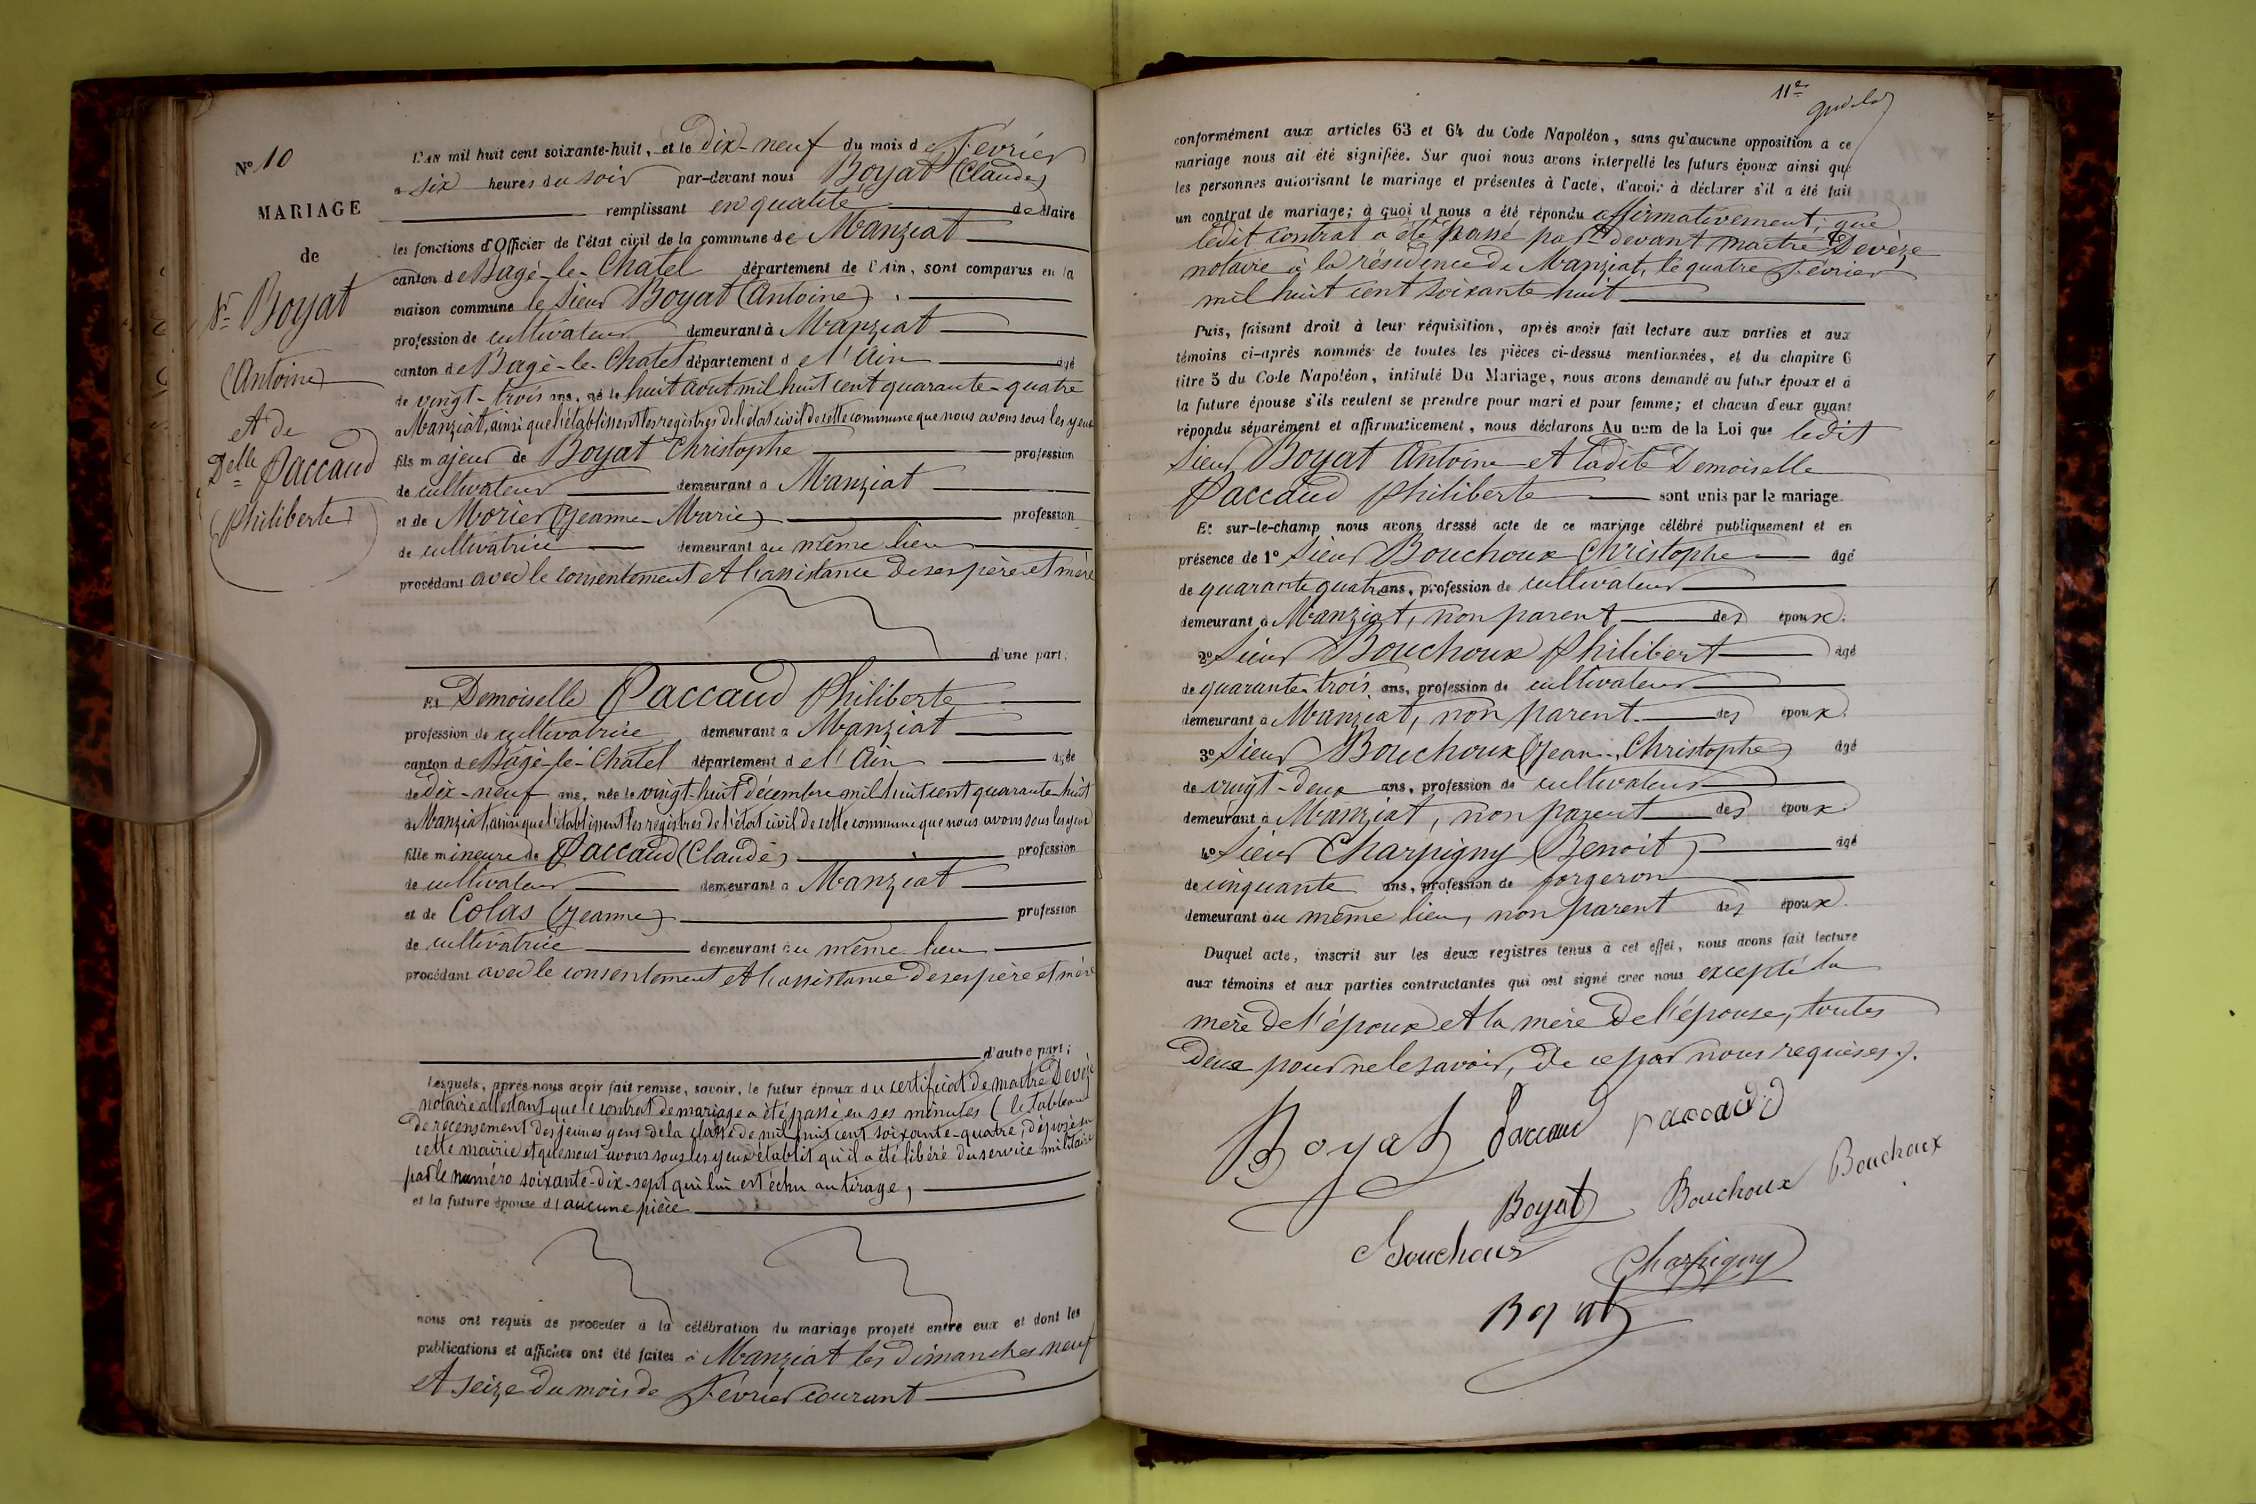 N° 10
MARIAGE
de
Sr Boyat
(Antoine)
et de
Delle Paccaud
(Philiberte)
L'AN mil huit cent soixante-huit, et le Dix-neuf du mois de Février
à six heures du soir par-devant nous Boyat (Claude)
remplissant en qualité de Maire
les fonctions d'Officier de l'état civil de la commune de Manziat
canton de Bâgé-le-Chatel département de l'Ain, sont comparus en la
maison commune le sieur Boyat (Antoine)
profession de cultivateur demeurant à Manziat
canton de Bagé-le-Chatel département de l'Ain âgé
de vingt-trois ans, né le huit aout mil huit cent quarante-quatre
à Manziat, ainsi que l'établissent les registres de l'état civil de cette commune que nous avons sous les yeux
fils majeur de Boyat Christophe profession
de cultivateur demeurant à Manziat
et de Morier (Jeanne-Marie) profession
de cultivatrice demeurant au même lieu
procédant avec le consentement et l'assistance de ses père et mère
d'une part;
Et Demoiselle Paccaud Philiberte
profession de cultivatrice demeurant à Manziat
canton de Bâgé-le-Chatel département de l'Ain âgée
de Dix-neuf ans, née le vingt-huit décembre mil huit cent quarante-huit
à Manziat, ainsi que l'établissent les registres de l'état civil de cette commune que nous avons sous les yeux
fille mineure de Paccaud (Claude) profession
de cultivateur demeurant à Manziat
et de Colas (Jeanne) profession
de cultivatrice demeurant au même lieu
procédant avec le consentement et l'assistance de ses père et mère
d'autre part;
Lesquels, après nous avoir fait remise, savoir, le futur époux du certificat de maître Devèze
notaire attestant que le contrat de mariage a été passé en ses minutes (le tableau
de recensement des jeunes gens de la classe de mil huit cent soixante-quatre, déposé en
cette mairie et que nous avons sous les yeux établit qu'il a été libéré du service militaire
par le numéro soixante-dix-sept qui lui est échu au tirage,
et la future épouse d'aucune pièce
nous ont requis de procéder à la célébration du mariage projeté entre eux et dont les
publications et affiches ont été faites à Manziat les dimanches neuf
et seize du mois de Février courant
11e
conformément aux articles 63 et 64 du Code Napoléon, sans qu'aucune opposition à ce
mariage nous ait été signifiée. Sur quoi nous avons interpellé les futurs époux ainsi que
les personnes autorisant le mariage et présentes à l'acte, d'avoir à déclarer s'il a été fait
un contrat de mariage; à quoi il nous a été répondu affirmativement; que
ledit contrat a été passé par devant maître Devèze
notaire à la résidence de Manziat, le quatre Février
mil huit cent soixante huit
Puis, faisant droit à leur réquisition, après avoir fait lecture aux parties et aux
témoins ci-après nommés de toutes les pièces ci-dessus mentionnées, et du chapitre 6
titre 5 du Code Napoléon, intitulé Du Mariage, nous avons demandé au futur époux et à
la future épouse s'ils veulent se prendre pour mari et pour femme; et chacun d'eux ayant
répondu séparément et affirmativement, nous déclarons Au nom de la Loi que ledit
Sieur Boyat Antoine et ladite Demoiselle
Paccaud Philiberte sont unis par le mariage.
Et sur-le-champ nous avons dressé acte de ce mariage célébré publiquement et en
présence de 1° Sieur Bouchoux Christophe âgé
de quarante quatre ans, profession de cultivateur
demeurant à Manziat, non parent des époux.
2° Sieur Bouchoux Philibert âgé
de quarante-trois ans, profession de cultivateur
demeurant à Manziat, non parent des époux.
3° Sieur Bouchoux (Jean-Christophe) âgé
de vingt-deux ans, profession de cultivateur
demeurant à Manziat, non parent des époux.
4° Sieur Charpigny (Benoit) âgé
de cinquante ans, profession de forgeron
demeurant au même lieu, non parent des époux.
Duquel acte, inscrit sur les deux registres tenus à cet effet, nous avons fait lecture
aux témoins et aux parties contractantes qui ont signé avec nous excepté la
mère de l'époux et la mère de l'épouse, toutes
deux pour ne le savoir, de ce par nous requises.
Boyat Paccaud Paccaud
Boyat Bouchoux Bouchoux
Bouchoux Charpigny
Boyat